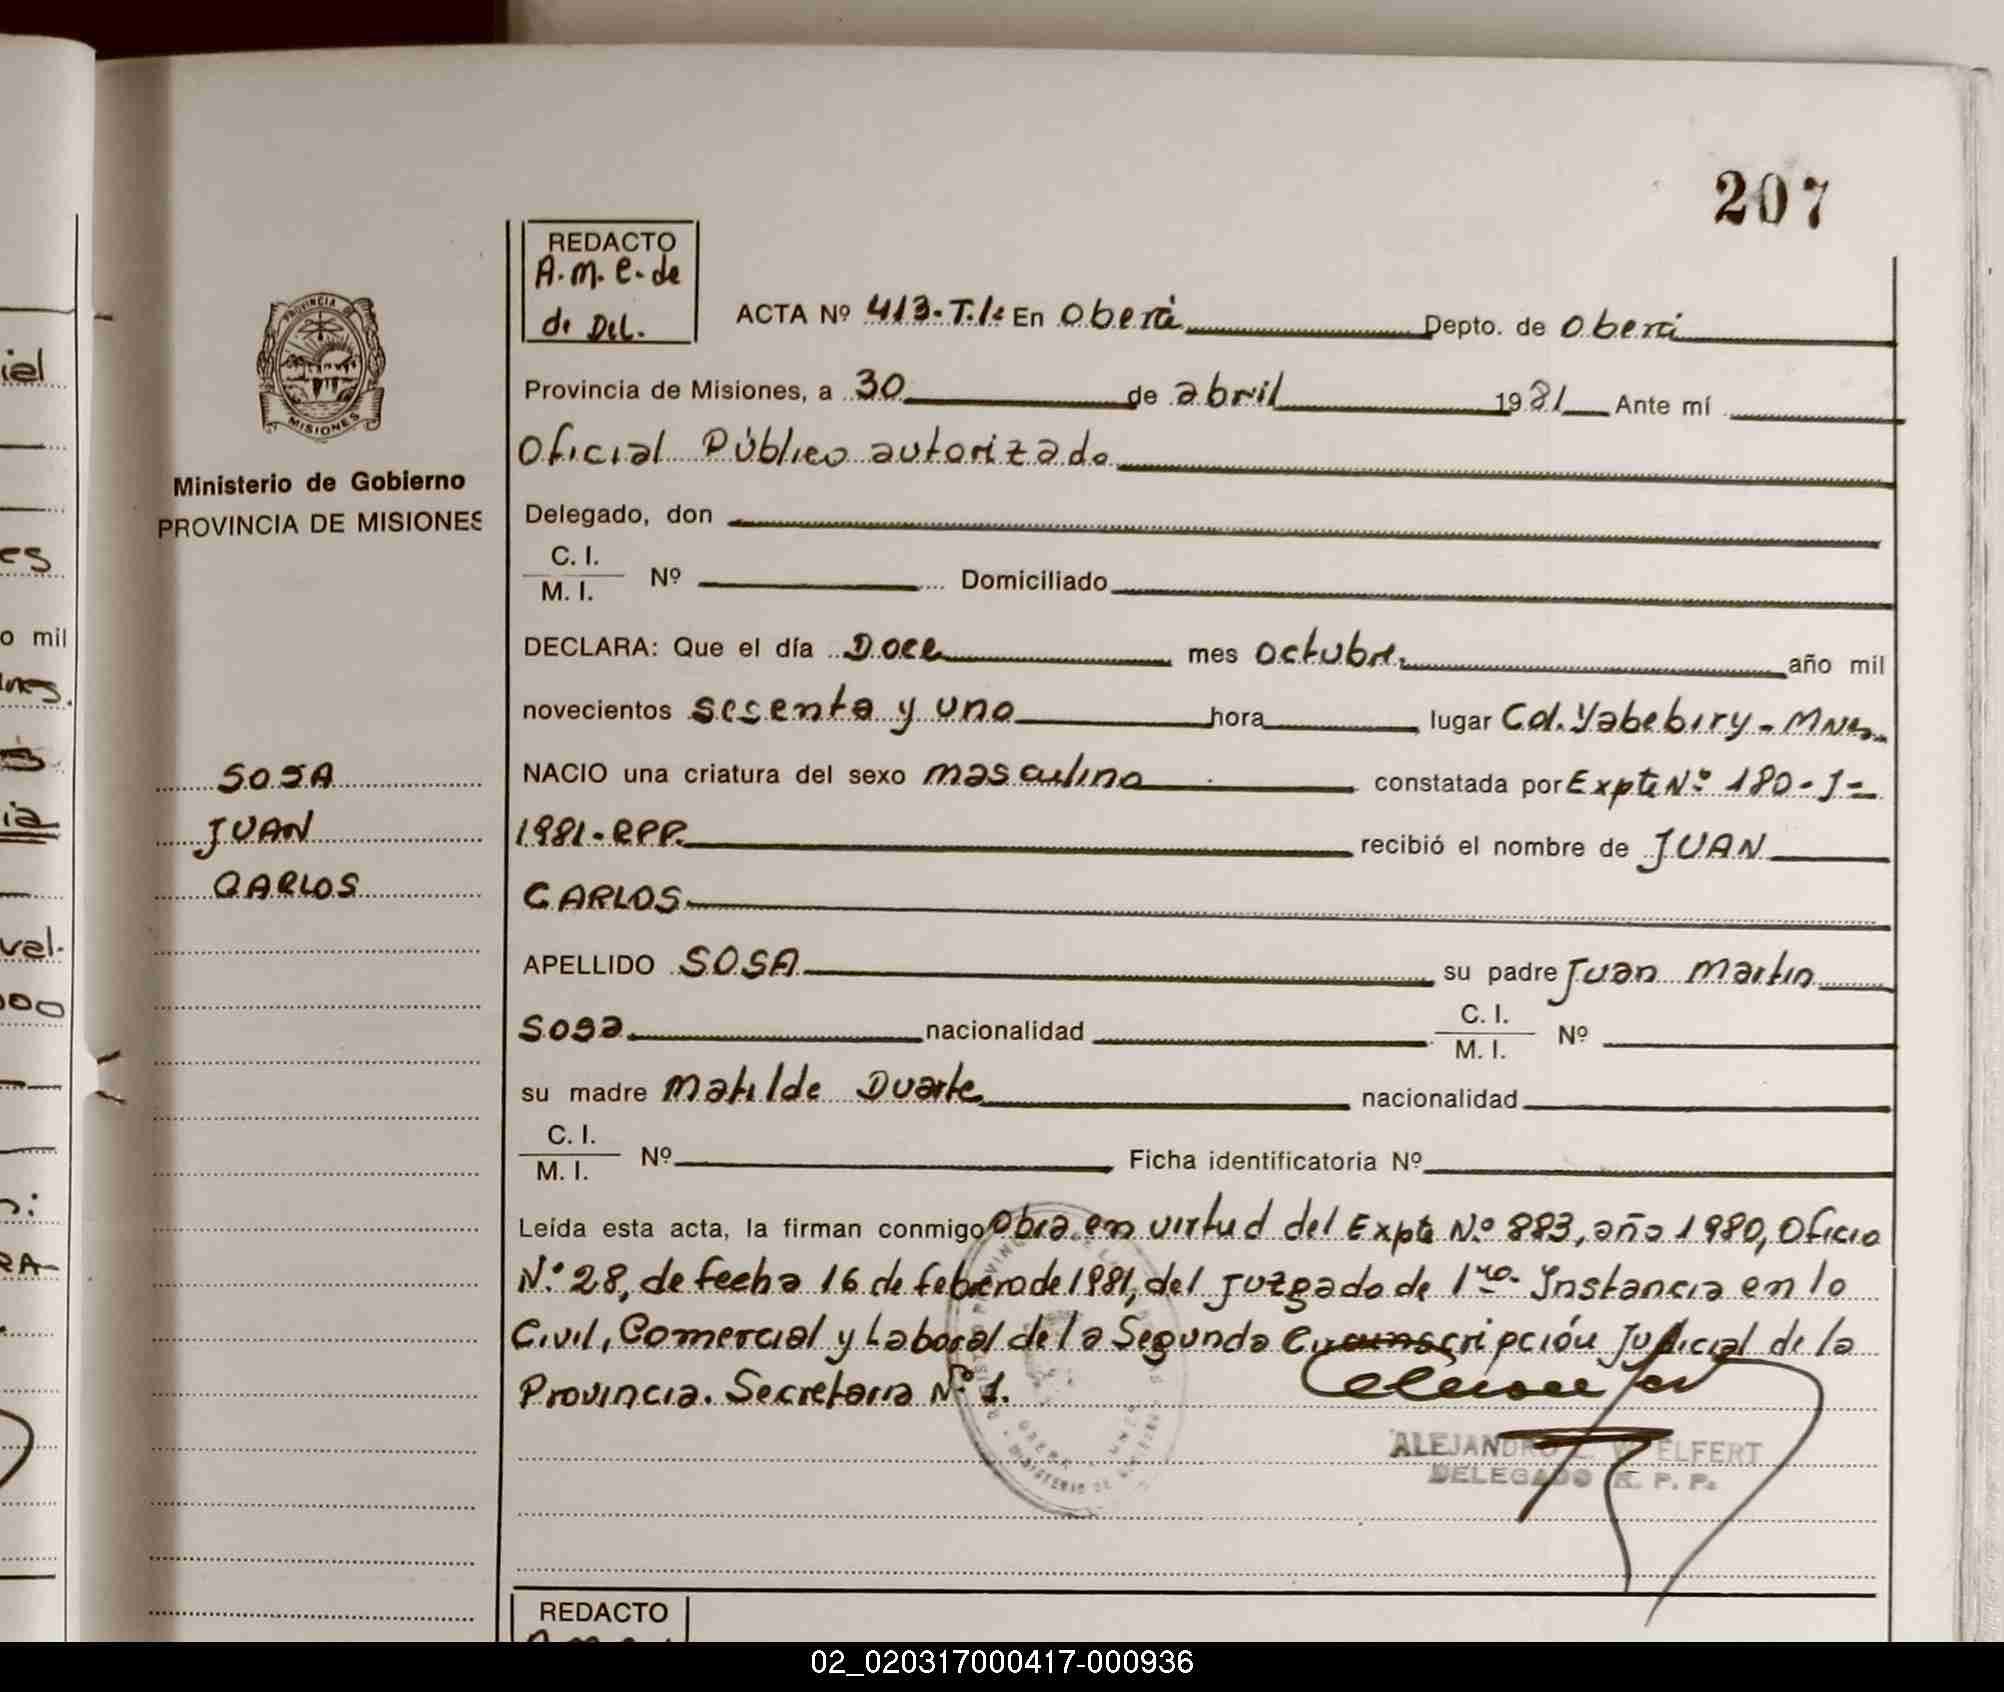 207
REDACTO
A.M.E. de
di Del.
ACTA Nº 413-T.1: En Oberá Depto. de Oberá
Provincia de Misiones, a 30 de abril 1981 Ante mí
Oficial Público autorizado
Delegado, don
C. I.
M. I. Nº Domiciliado
DECLARA: Que el día Doce mes octubre año mil
novecientos sesenta y uno hora lugar Col. Yabebiry - Mnes.
NACIO una criatura del sexo masculino constatada por Expte Nº 180-J-
1981-RPP. recibió el nombre de JUAN
CARLOS
APELLIDO SOSA su padre Juan Martin
Sosa nacionalidad C. I.
M. I. Nº
su madre Matilde Duarte nacionalidad
C. I.
M. I. Nº Ficha identificatoria Nº
Leída esta acta, la firman conmigo Obra en virtud del Expte Nº 883, año 1980, Oficio
Nº 28, de fecha 16 de febrero de 1981, del Juzgado de 1ra. Instancia en lo
Civil, Comercial y Laboral de la Segunda Circunscripción Judicial de la
Provincia. Secretaria Nº 1.
ALEJANDRO W ELFERT
DELEGADO R. P. P.
PROVINCIA
MISIONES
Ministerio de Gobierno
PROVINCIA DE MISIONES
SOSA
JUAN
CARLOS
REDACTO
ial
es
o mil
ia
val.
000
RA-
02_020317000417-000936